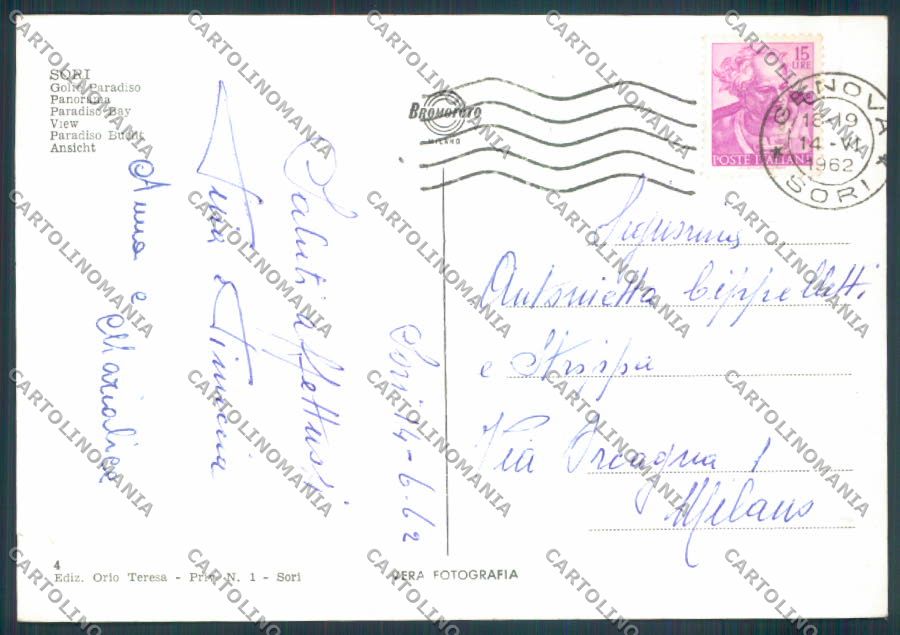 SORI
Golfo Paradiso
Panorama
Paradiso Bay
View
Paradiso Bucht
Ansicht
BROMOFOTO
MILANO
15
LIRE
POSTE ITALIANE
GENOVA
18-19
14-VI
1962
SORI
Sori 14-6-62
Saluti affettuosi
Anna e Marialisa
Antonietta
e
Via Orcagna 1
Milano
4
Ediz. Orio Teresa - Priv. N. 1 - Sori
VERA FOTOGRAFIA
CARTOLINOMANIA